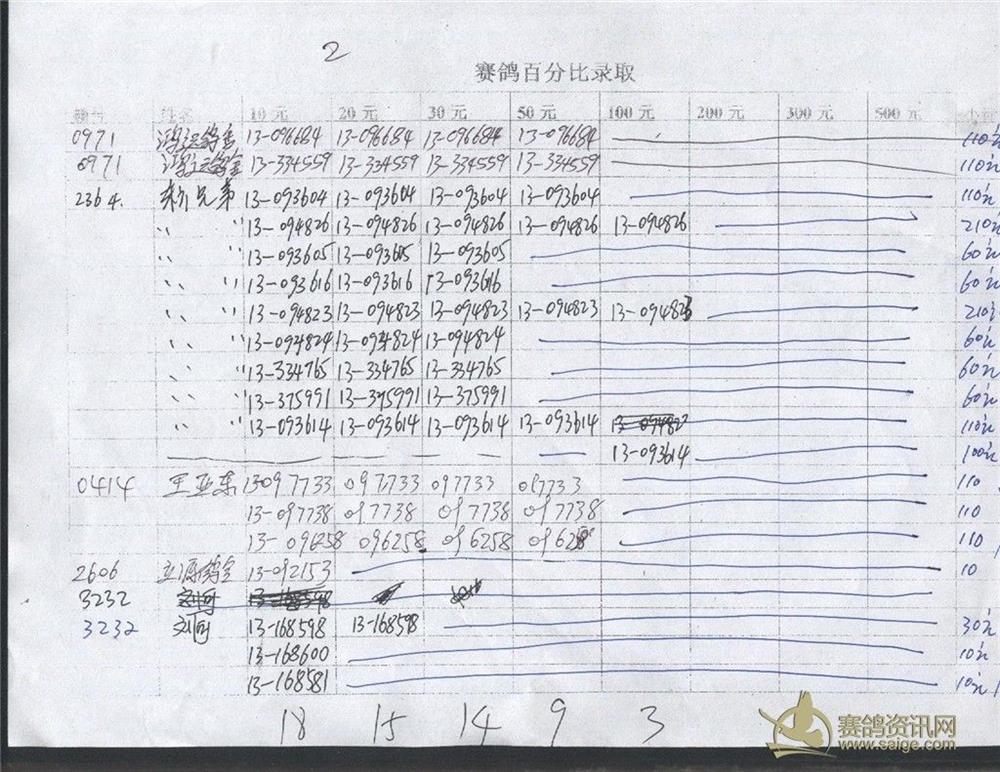 2
赛鸽百分比录取
姓名 10元 20元 30元 50元 100元 200元 300元 500元 小计
0971 鸿运鸽舍 13-096684 13-096684 13-096684 13-096684 110元
0971 鸿运鸽舍 13-334559 13-334559 13-334559 13-334559 110元
2364. 兄弟 13-093604 13-093604 13-093604 13-093604 110元
〃 〃 13-094826 13-094826 13-094826 13-094826 13-094826 210元
〃 〃 13-093605 13-093605 13-093605 60元
〃 〃 13-093616 13-093616 13-093616 60元
〃 〃 13-094823 13-094823 13-094823 13-094823 13-094823 210元
〃 〃 13-094824 13-094824 13-094824 60元
〃 〃 13-334765 13-334765 13-334765 60元
〃 〃 13-375991 13-375991 13-375991 60元
〃 〃 13-093614 13-093614 13-093614 13-093614 110元
13-093614 100元
0414 王亚东 13097733 097733 097733 097733 110
13-097738 097738 097738 097738 110
13-096258 096258 096258 096258 110
2606 立源鸽舍 13-092153 10
3232
3232 刘何 13-168598 13-168598 30元
13-168600 10元
13-168581 10元
18 15 14 9 3
赛鸽资讯网
www.saige.com